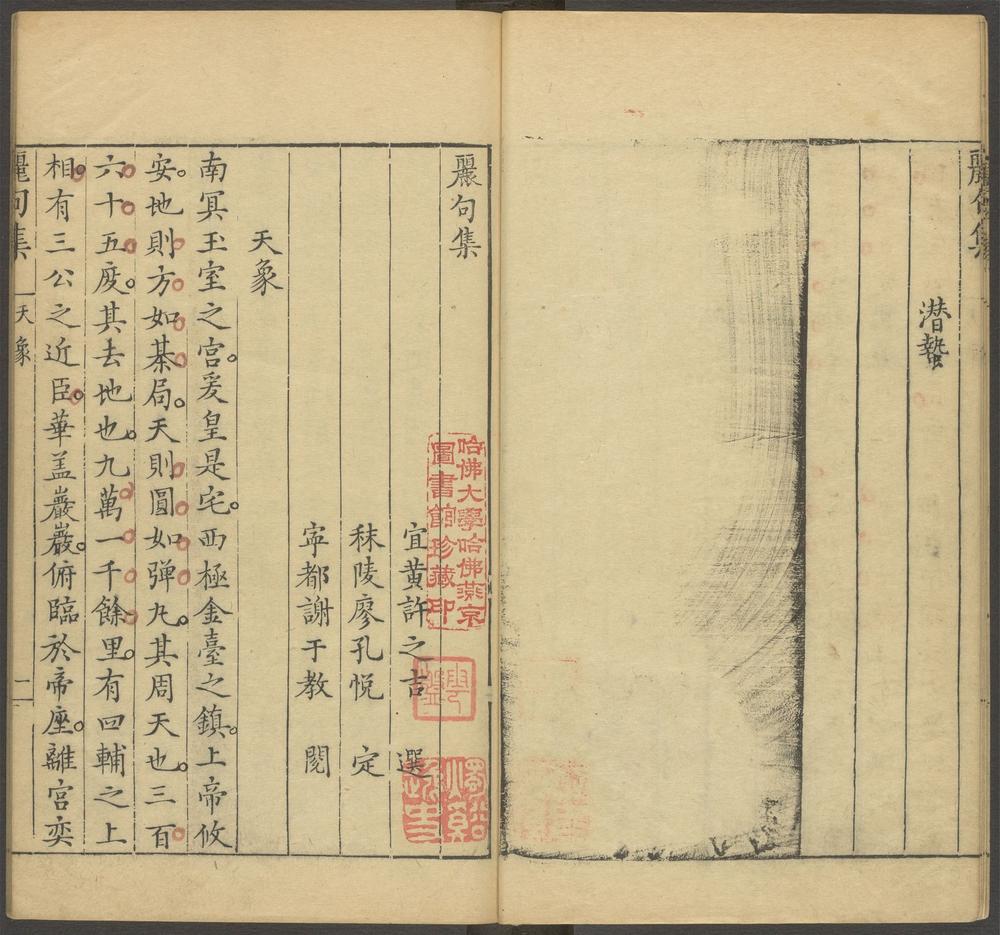 麗句集
潛蟄
麗句集
宜黄許之吉 選
秣陵廖孔悦 定
寕都謝于教 閱
天象
南冥玉室之宫。爰皇是宅。西極金臺之鎮。上帝攸
安。地則方如棊局。天則圓如弹丸。其周天也。三百
六十五度。其去地也。九萬一千餘里。有四輔之上
相。有三公之近臣。華盖巖巖。俯臨於帝座。離宫奕
麗句集 天象 二
哈佛大學哈佛燕京
圖書館珍藏印